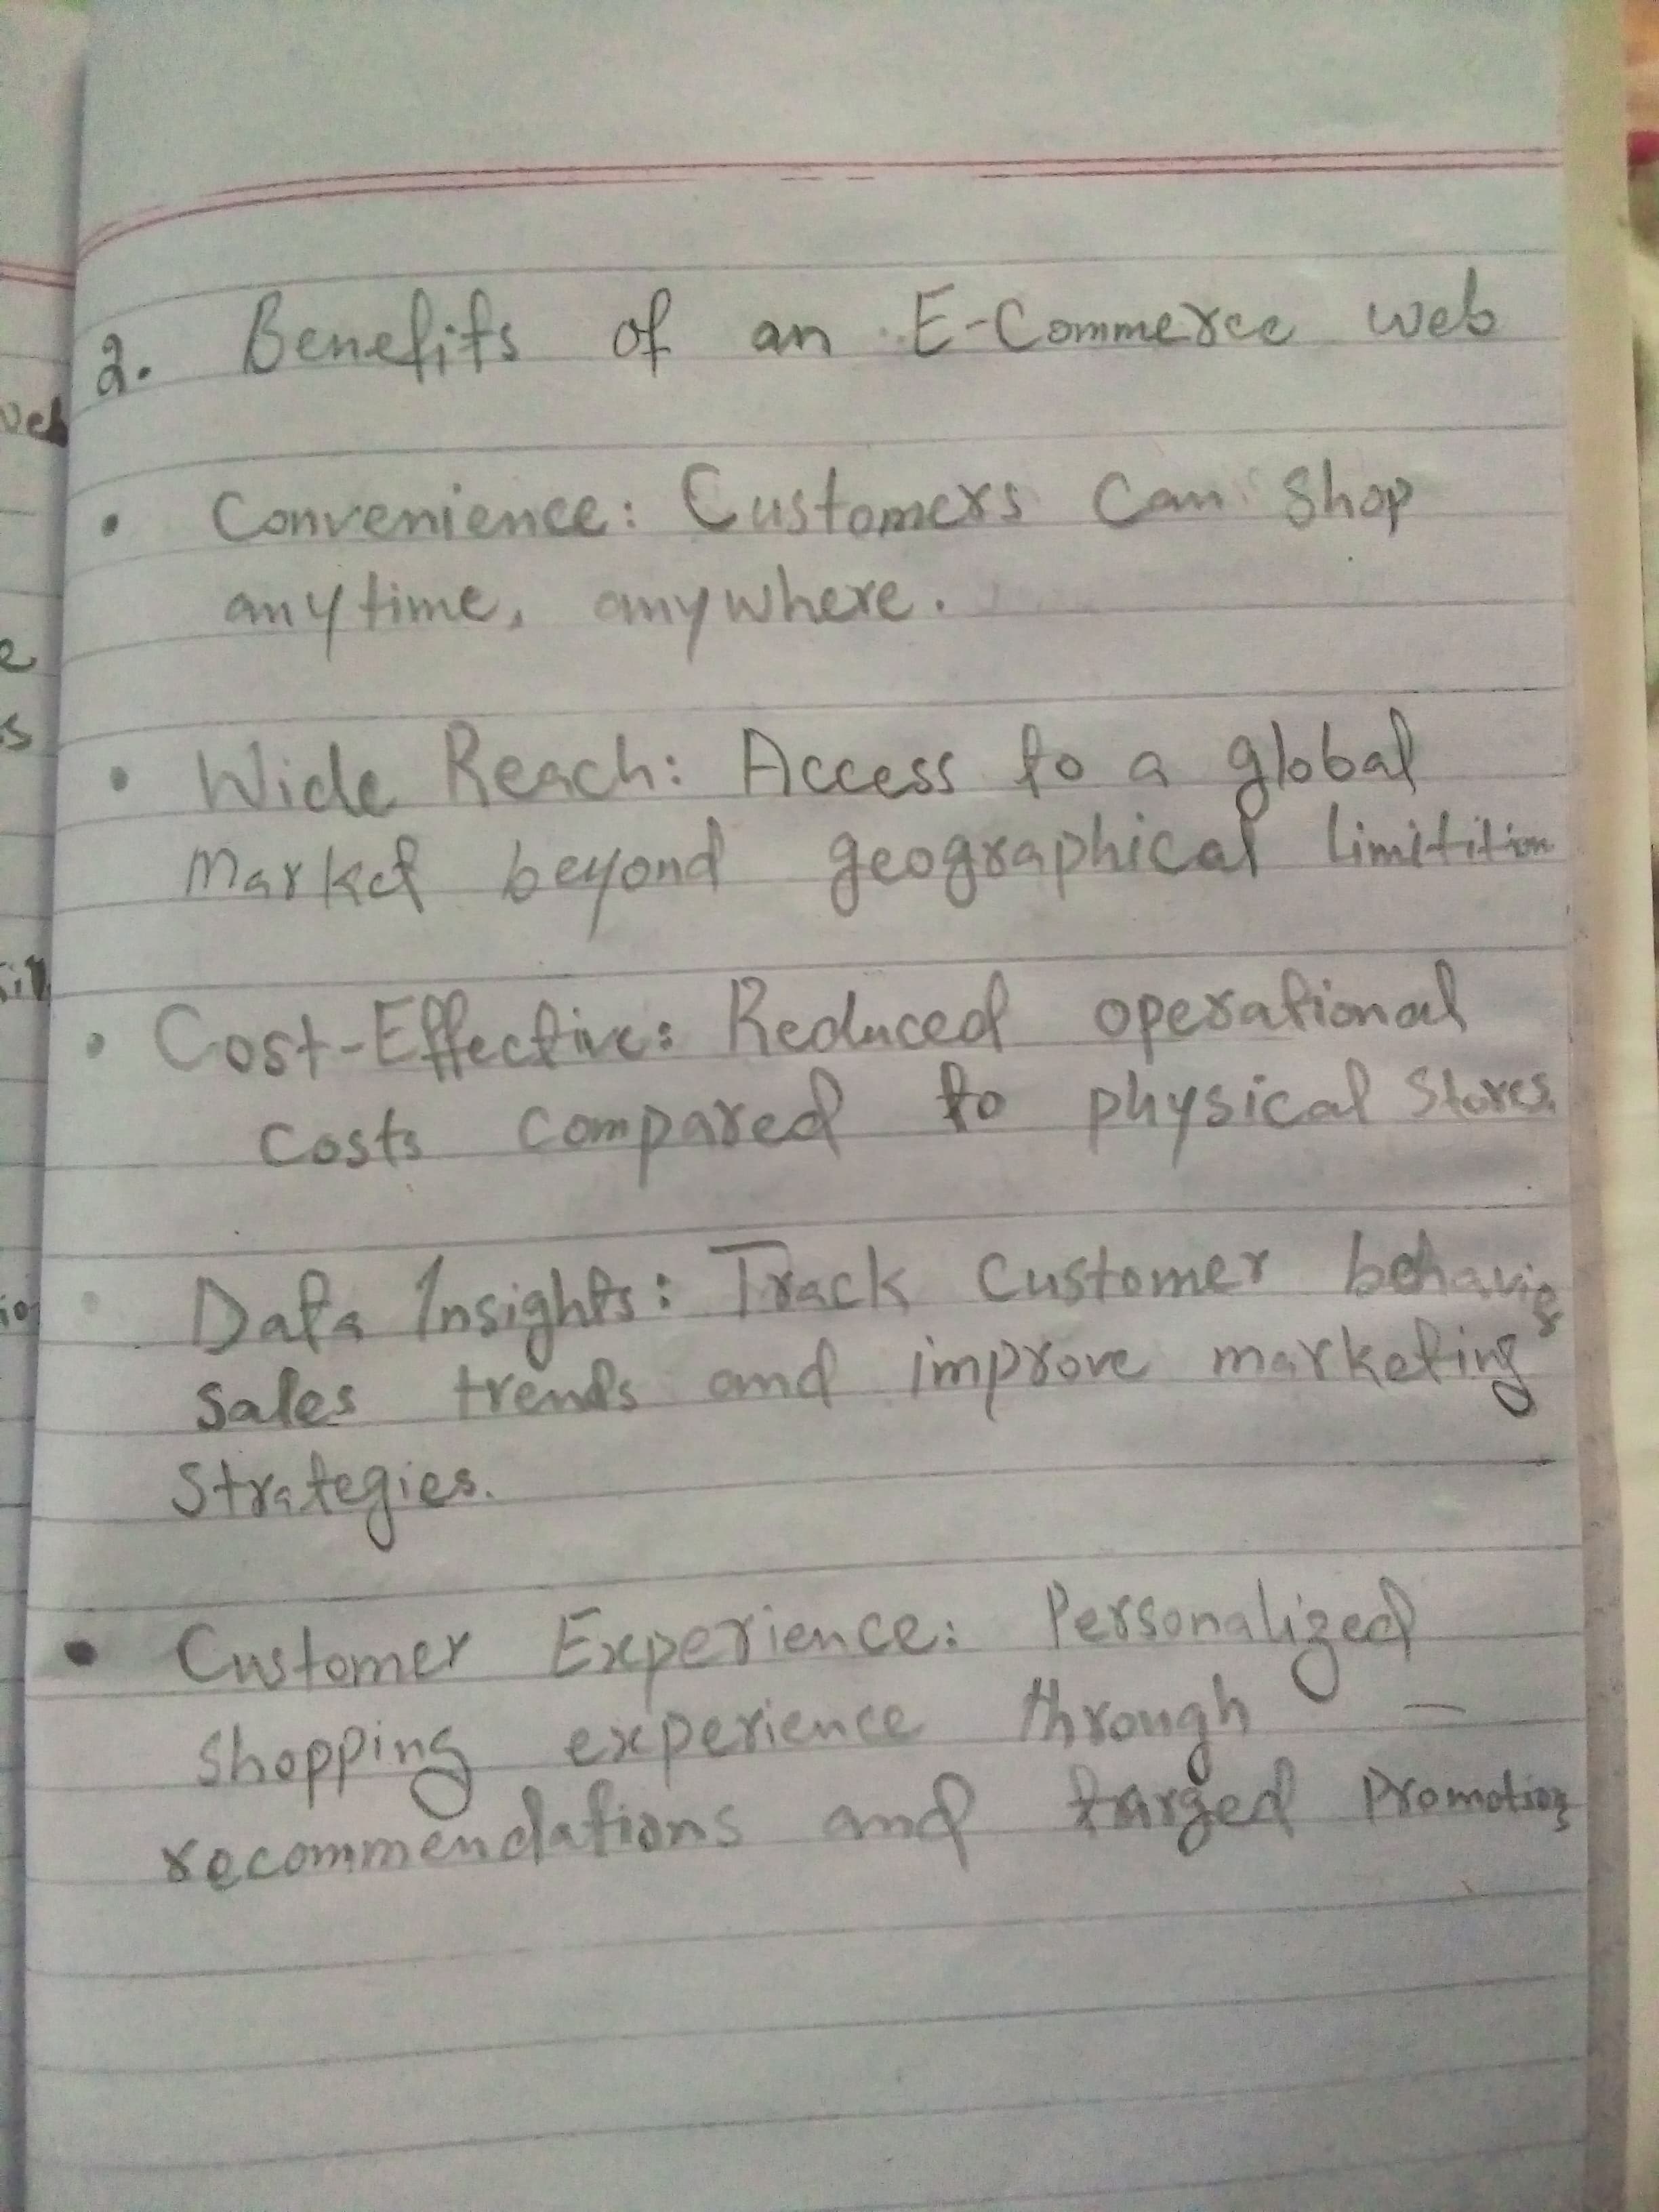 2. Benefits of an E-Commerce web
• Convenience: Customers Can Shop
anytime, anywhere.
• Wide Reach: Access to a global
Market beyond geographical limitition
• Cost-Effective: Reduced operational
Costs compared to physical Stores.
• Data Insights: Track Customer behavior
Sales trends and improve marketing
Strategies.
• Customer Experience: Personalized
Shopping experience through —
recommendations and targed Promotions